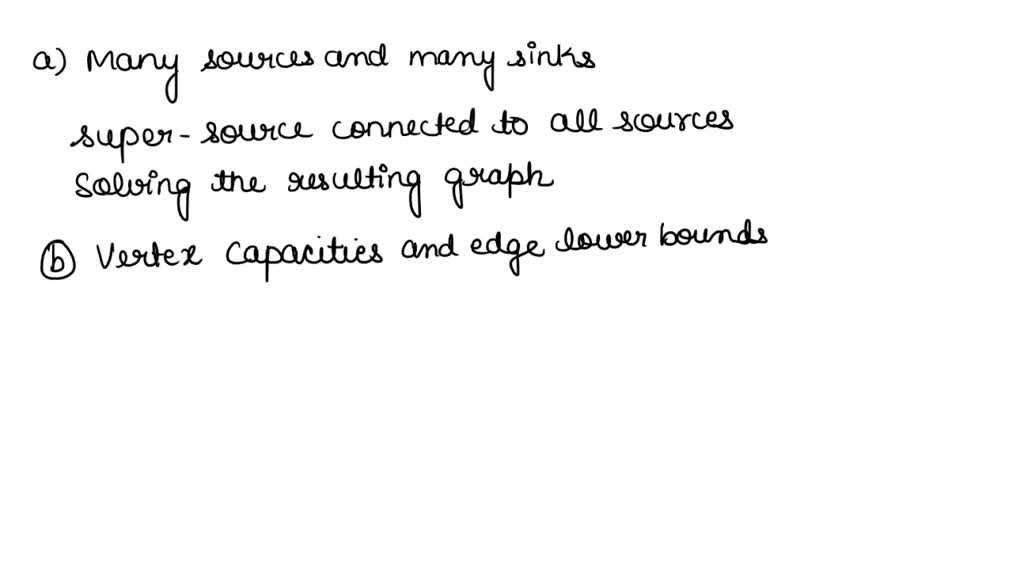 a) Many sources and many sinks
super-source connected to all sources
Solving the resulting graph
(b) Vertex capacities and edge lower bounds